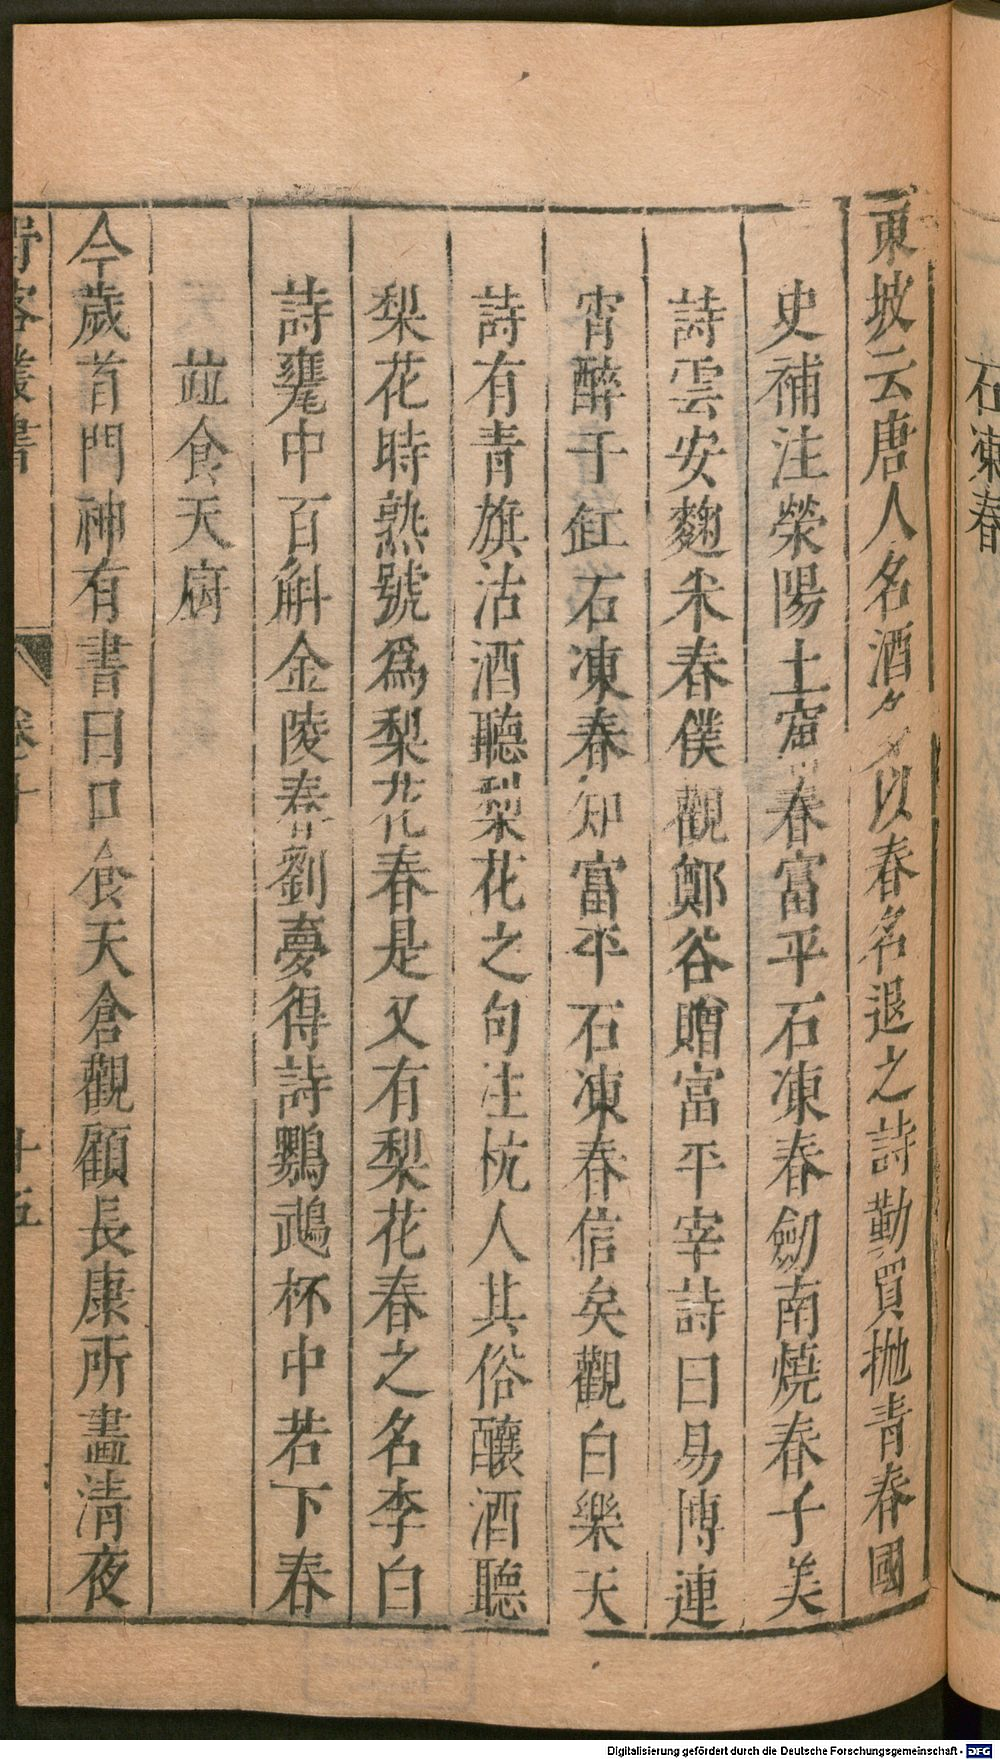 石凍春
東坡云唐人名酒多以春名退之詩勤買抛青春國
史補注滎陽土窟春富平石凍春劒南燒春子美
詩雲安麴米春僕觀鄭谷贈富平宰詩曰易博連
宵醉千缸石凍春知富平石凍春信矣觀白樂天
詩有青旗沽酒聽梨花之句注杭人其俗釀酒聽
梨花時熟號為梨花春是又有梨花春之名李白
詩甕中百斛金陵春劉夢得詩鸚鵡杯中若下春
並食天廚
今歲首門神有書曰口食天倉觀顧長康所畫清夜
卷十
十五
Digitalisierung gefördert durch die Deutsche Forschungsgemeinschaft - DFG